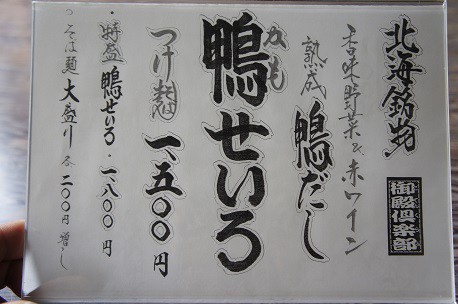 北海釧物
御殿倶楽部
香味野菜&赤ワイン
熟成鴨だし
かも
鴨せいろ
つけ麺 一、五〇〇円
・特盛 鴨せいろ・一、八〇〇円
・そば麺 大盛り 各 二〇〇円 増し